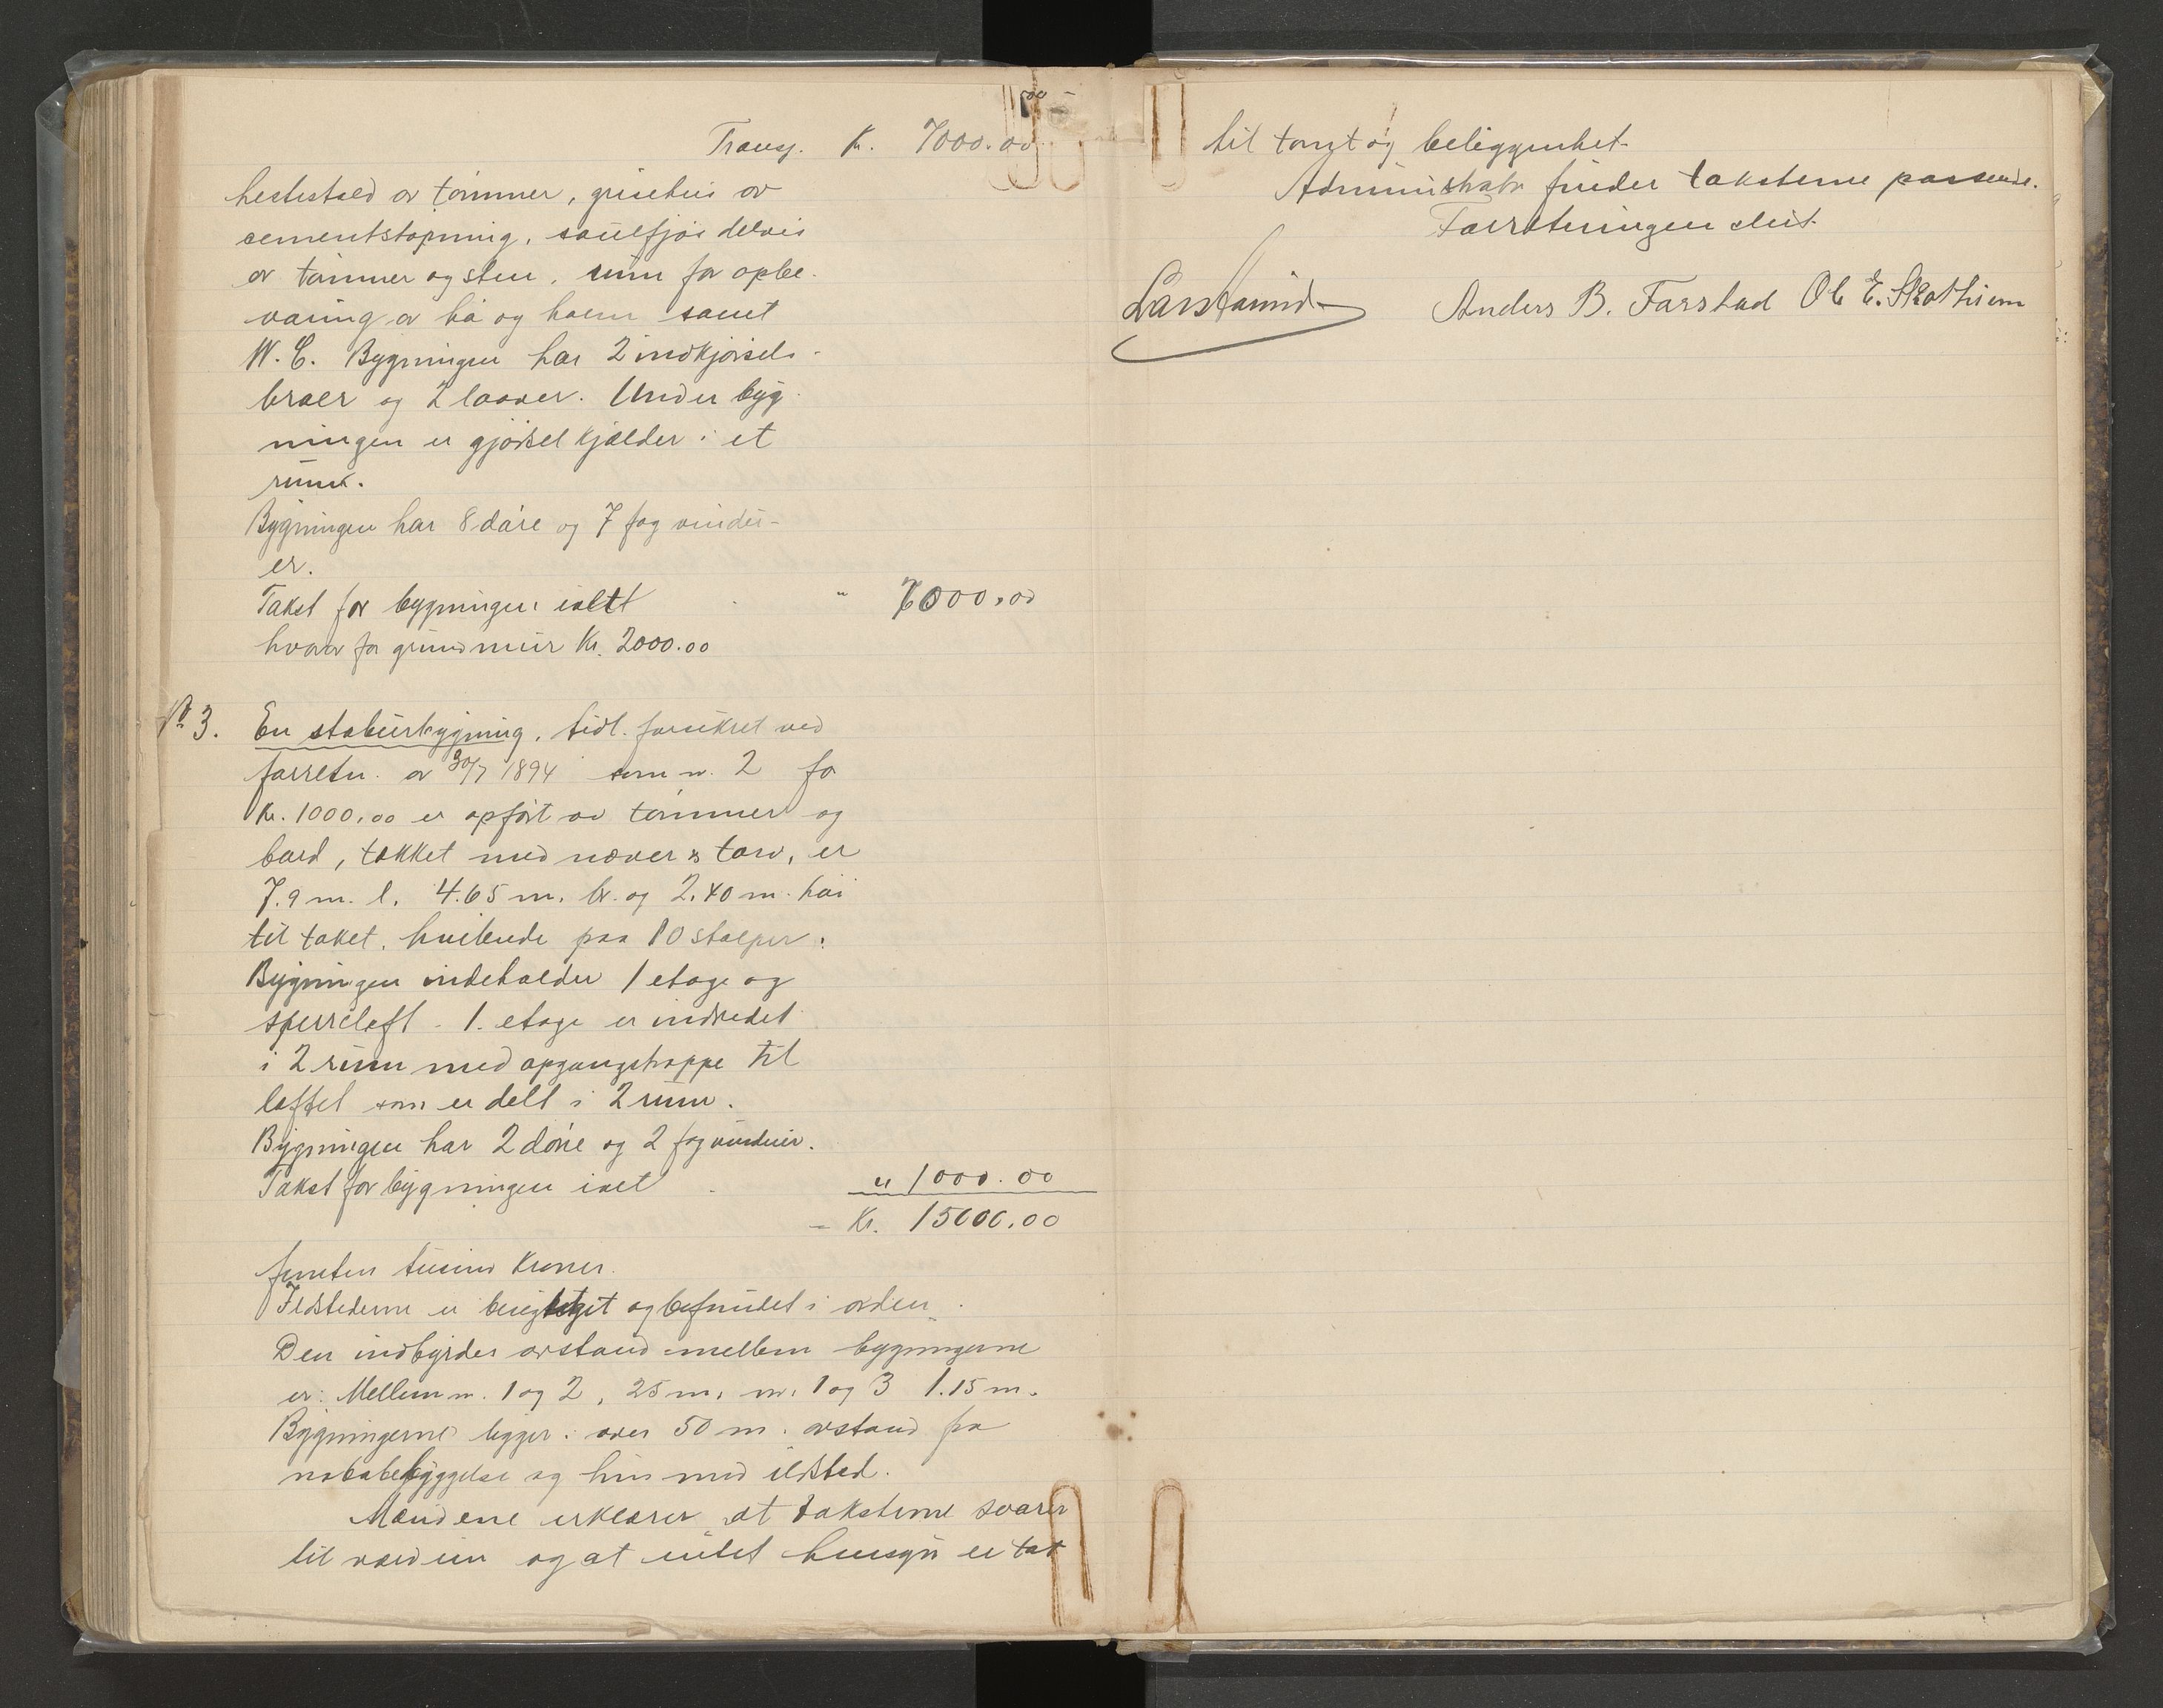 Transp. Kr. 7000.00
hestestald av tømmer, grisehus av
cementstøpning, sauefjøs delvis
av tømmer og sten, rum for opbe-
varing av hø og halm samt
W.C. Bygningen har 2 indkjørsels-
broer og 2 laaver. Under byg-
ningen er gjødselkjælder i et
rum.
Bygningen har 8 døre og 7 fag vindu-
er.
Takst for bygningen ialt " 7000.00
hvorav for grundmur Kr. 2000.00
No 3. En staburbygning, tidl. forsikret ved
forretn. av 30/7 1894 som nr. 2 for
Kr. 1000.00 er opført av tømmer og
bord, tækket med næver & torv, er
7.9 m. l. 4.65 m. br. og 2.40 m. høi
til taket, hvilende paa 10 stolper.
Bygningen indeholder 1 etage og
sperreloft. 1. etage er indredet
i 2 rum med opgangstrappe til
loftet som er delt i 2 rum.
Bygningen har 2 døre og 2 fag vinduer.
Takst for bygningen ialt " 1000.00
Kr. 15000.00
femten tusind kroner.
Ildstederne er besigtiget og befundet i orden.
Den indbyrdes avstand mellem bygningerne
er: Mellem nr. 1 og 2, 25 m, nr. 1 og 3 1.15 m.
Bygningerne ligger i over 50 m. avstand fra
nabobebyggelse og hus med ildsted.
Mændene erklærer at taksterne svarer
til værdien og at intet hensyn er tat
til tomt og beliggenhet.
Administrator finder taksterne passende.
Forretningen slut.
Lars Anders B. Farstad Ole E. Skothiem